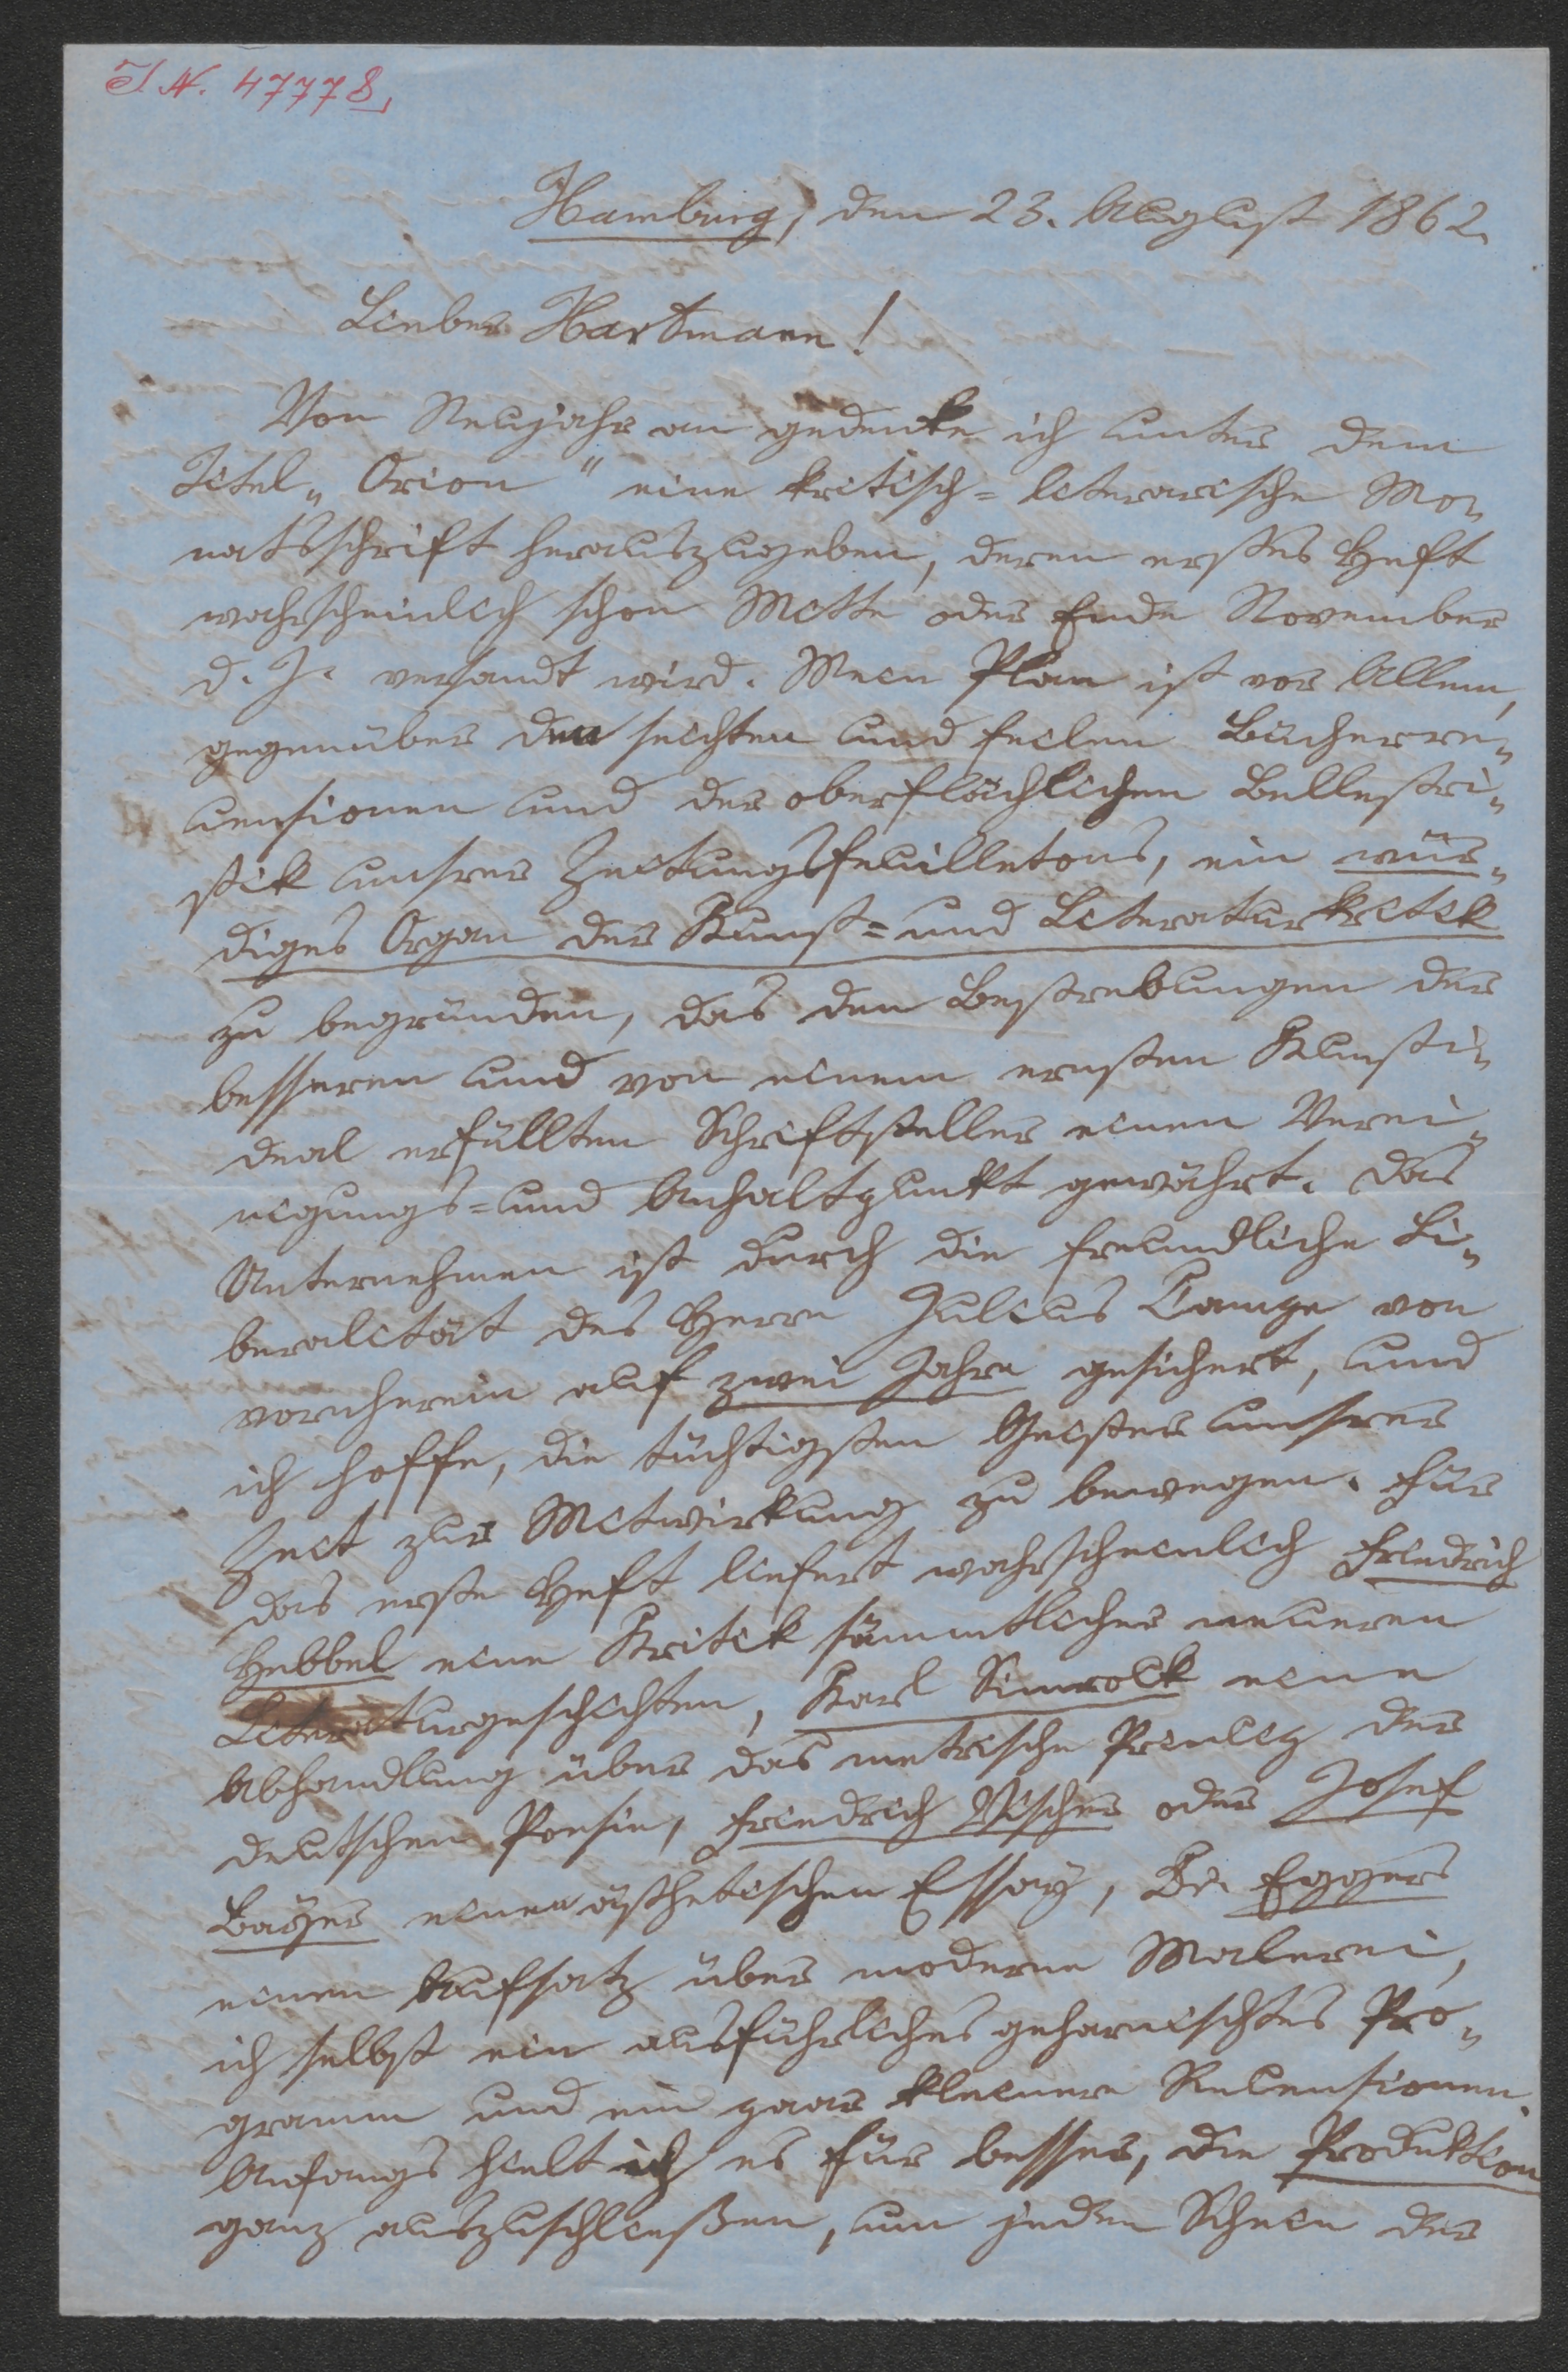 I. N. 47778
Hamburg, den 23. August 1862.
Lieber Hartmann!
Von Neujahr an gedenke ich unter dem
Titel „Orion“ eine kritisch=literarische Mo-
natsschrift herauszugeben, deren erstes Heft
wahrscheinlich schon Mitte oder Ende November
d. J. versandt wird. Mein Plan ist vor Allem,
gegenüber den seichten und feilen Bücherre-
censionen und der oberflächlichen Belletri-
stik unsrer Zeitungsfeuilletons, ein wür-
diges Organ der Kunst= und Literaturkritik
zu begründen, das den Bestrebungen der
besseren und von einem ernsten Kunsti-
deal erfüllten Schriftsteller einen Verei-
nigungs= und Anhaltpunkt gewährt. Das
Unternehmen ist durch die freundliche Li-
beralität des Herrn Julius Campe von
vornherein auf zwei Jahre gesichert, und
ich hoffe, die tüchtigsten Geister unsrer
Zeit zur Mitwirkung zu bewegen. Für
das erste Heft liefert wahrscheinlich Friedrich
Hebbel eine Kritik sämmtlicher neueren
Literaturgeschichten, Karl Simrock eine
Abhandlung über das metrische Princip der
deutschen Poesie, Friedrich Vischer oder Josef
Bayer einen ästhetischen Essay, Dr. Eggers
einen Aufsatz über moderne Malerei,
ich selbst ein ausführliches geharnischtes Pro-
gramm und ein paar kleinere Recensionen.
Anfangs hielt ich es für besser, die Produktion
ganz auszuschließen, um jeden Schein der